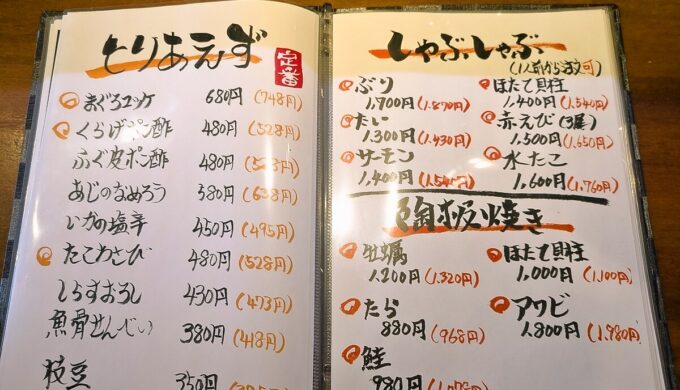 とりあえず
定番
まぐろユッケ 680円(748円)
くらげポン酢 480円(528円)
ふぐ皮ポン酢 480円(528円)
あじのなめろう 580円(638円)
いかの塩辛 450円(495円)
たこわさび 480円(528円)
しらすおろし 430円(473円)
魚骨せんべい 380円(418円)
枝豆 350円
しゃぶしゃぶ
(1人前から注文可)
ぶり
1,700円(1,870円)
たい
1,300円(1,430円)
サーモン
1,400円(1,540円)
ほたて貝柱
1,400円(1,540円)
赤えび(3尾)
1,500円(1,650円)
水たこ
1,600円(1,760円)
陶板焼き
牡蠣
1,200円(1,320円)
たら
880円(968円)
鮭
980円(1,078円)
ほたて貝柱
1,000円(1,100円)
アワビ
1,800円(1,980円)